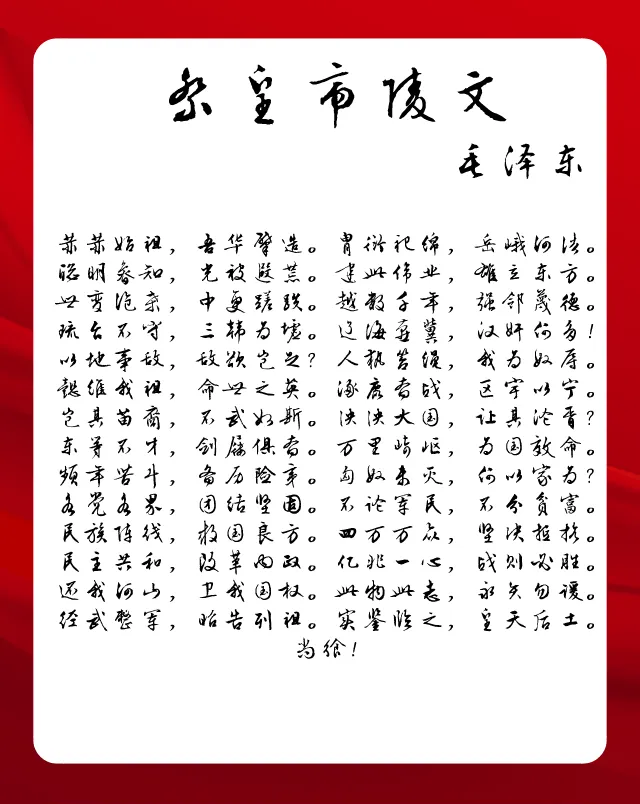 祭皇帝陵文
毛泽东
赫赫始祖，吾华肇造。胄衍祀绵，岳峨河浩。
聪明睿知，光被遐荒。建此伟业，雄立东方。
世变沧桑，中更蹉跌。越数千年，强邻蔑德。
琉台不守，三韩为墟。辽海燕冀，汉奸何多！
以地事敌，敌欲岂足？人执笞绳，我为奴辱。
懿维我祖，命世之英。涿鹿奋战，区宇以宁。
岂其苗裔，不武如斯。泱泱大国，让其沦胥？
东等不才，剑屦俱奋。万里崎岖，为国效命。
频年苦斗，备历险夷。匈奴未灭，何以家为？
各党各界，团结坚固。不论军民，不分贫富。
民族阵线，救国良方。四万万众，坚决抵抗。
民主共和，改革内政。亿兆一心，战则必胜。
还我河山，卫我国权。此物此志，永矢勿谖。
经武整军，昭告列祖。实鉴临之，皇天后土。
尚飨！